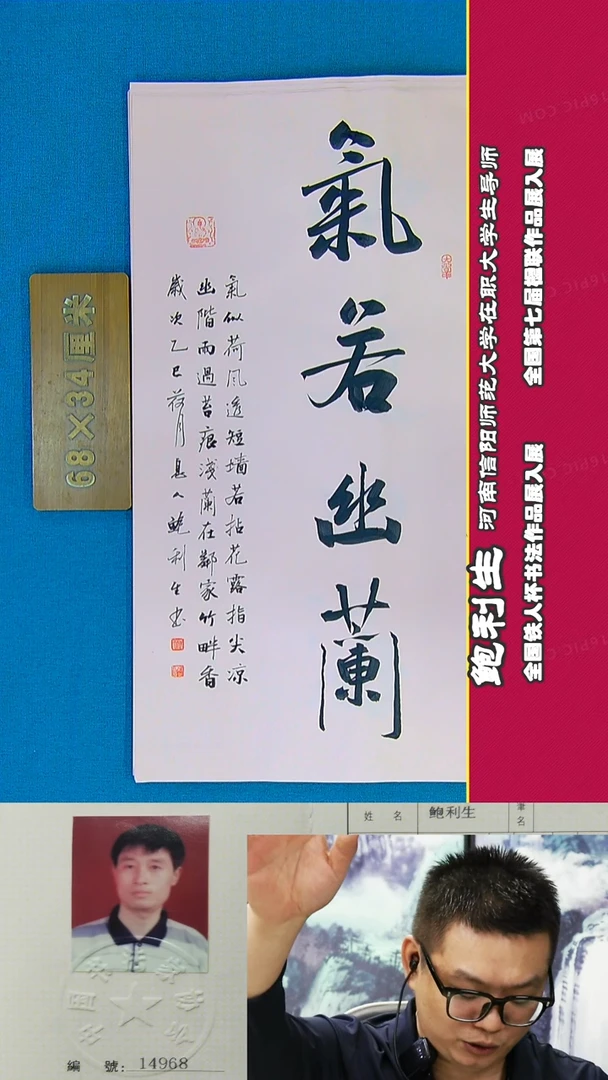 氣若幽蘭
氣似荷風透短墻若拈花露指尖凉
幽階雨過苔痕淺蘭在鄰家竹畔香
歲次乙巳荷月息人鮑利生书
68×34厘米
鲍利生 河南信阳师范大学在职大学生导师
全国铁人杯书法作品展入展 全国第七届楹联作品展入展
姓 名 鲍利生 筆名
編 號: 14968